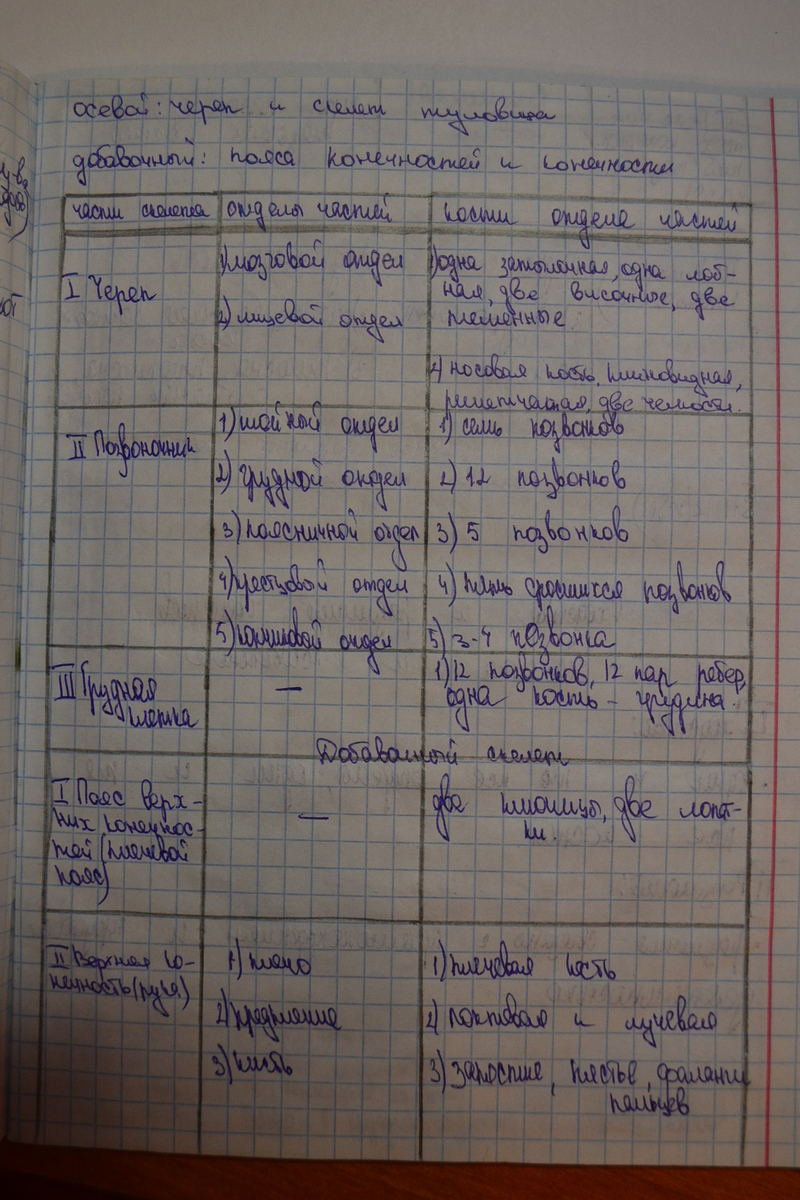 осевой: череп и скелет туловища
добавочный: пояса конечностей и конечности
части скелета отделы частей кости отдела частей
I Череп
1) мозговой отдел
2) лицевой отдел
1) одна затылочная, одна лоб-
ная, две височные, две
теменные
2) носовая кость, клиновидная,
решетчатая, две челюсти.
II Позвоночник
1) шейный отдел
2) грудной отдел
3) поясничной отдел
4) крестцовой отдел
5) копчиковой отдел
1) семь позвонков
2) 12 позвонков
3) 5 позвонков
4) пять сросшихся позвонков
5) 3-4 позвонка
III Грудная
клетка
—
1) 12 позвонков, 12 пар ребер,
одна кость - грудина.
Добавочный скелет
I Пояс верх-
них конечнос-
тей (плечевой
пояс)
—
две ключицы, две лопат-
ки.
II Верхняя ко-
нечность (рука)
1) плечо
2) предплечие
3) кисть
1) плечевая кость
2) локтевая и лучевая
3) запястие, пястье, фаланги
пальцев